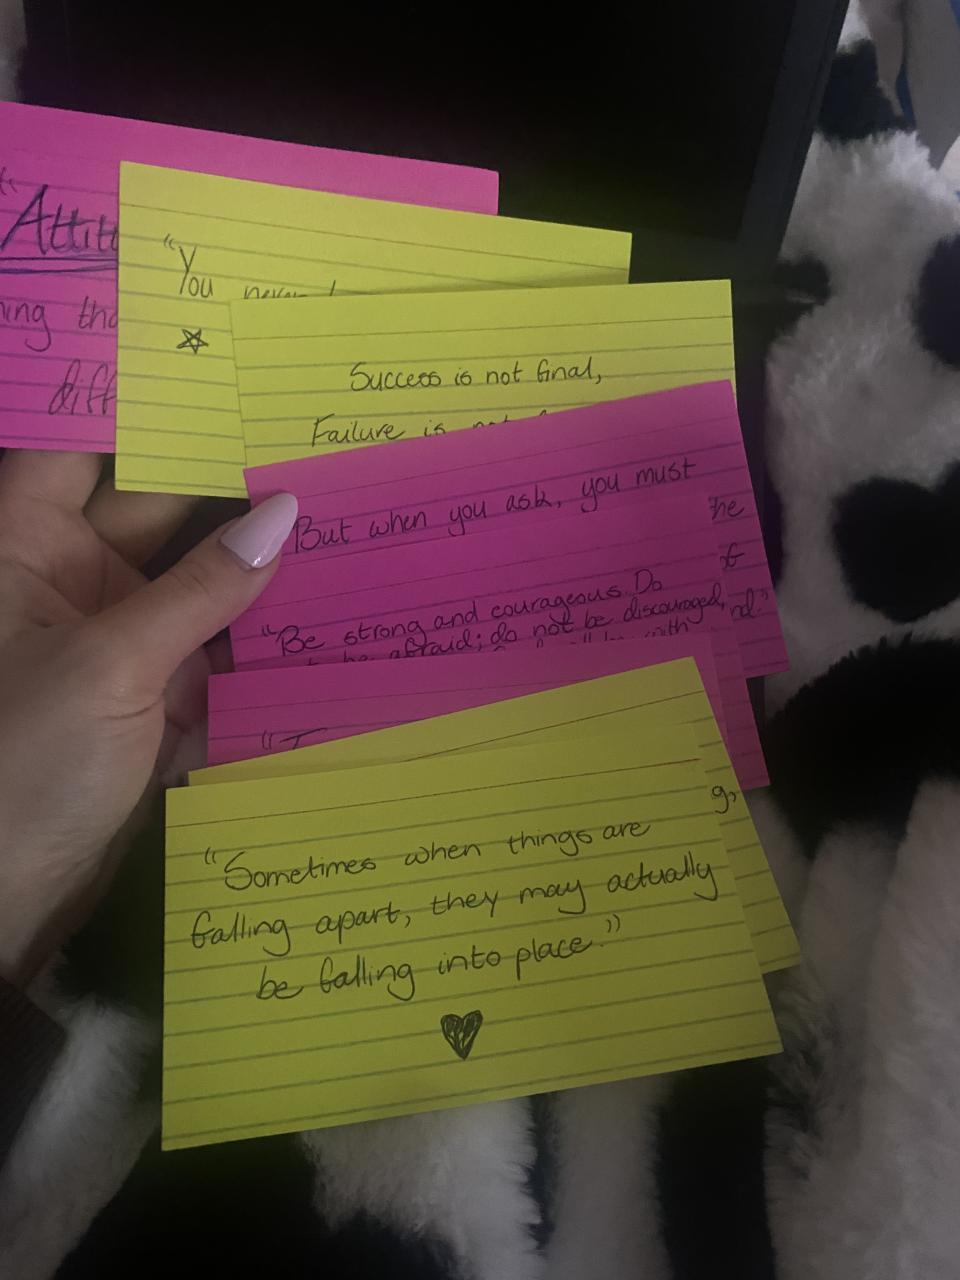 "Attit
ing tha
diff
"You never
Success is not final,
Failure is not
But when you ask, you must
he
"Be strong and courageous. Do
be afraid; do not be discouraged,
nd."
will be with
"I
g,
"Sometimes when things are
falling apart, they may actually
be falling into place."